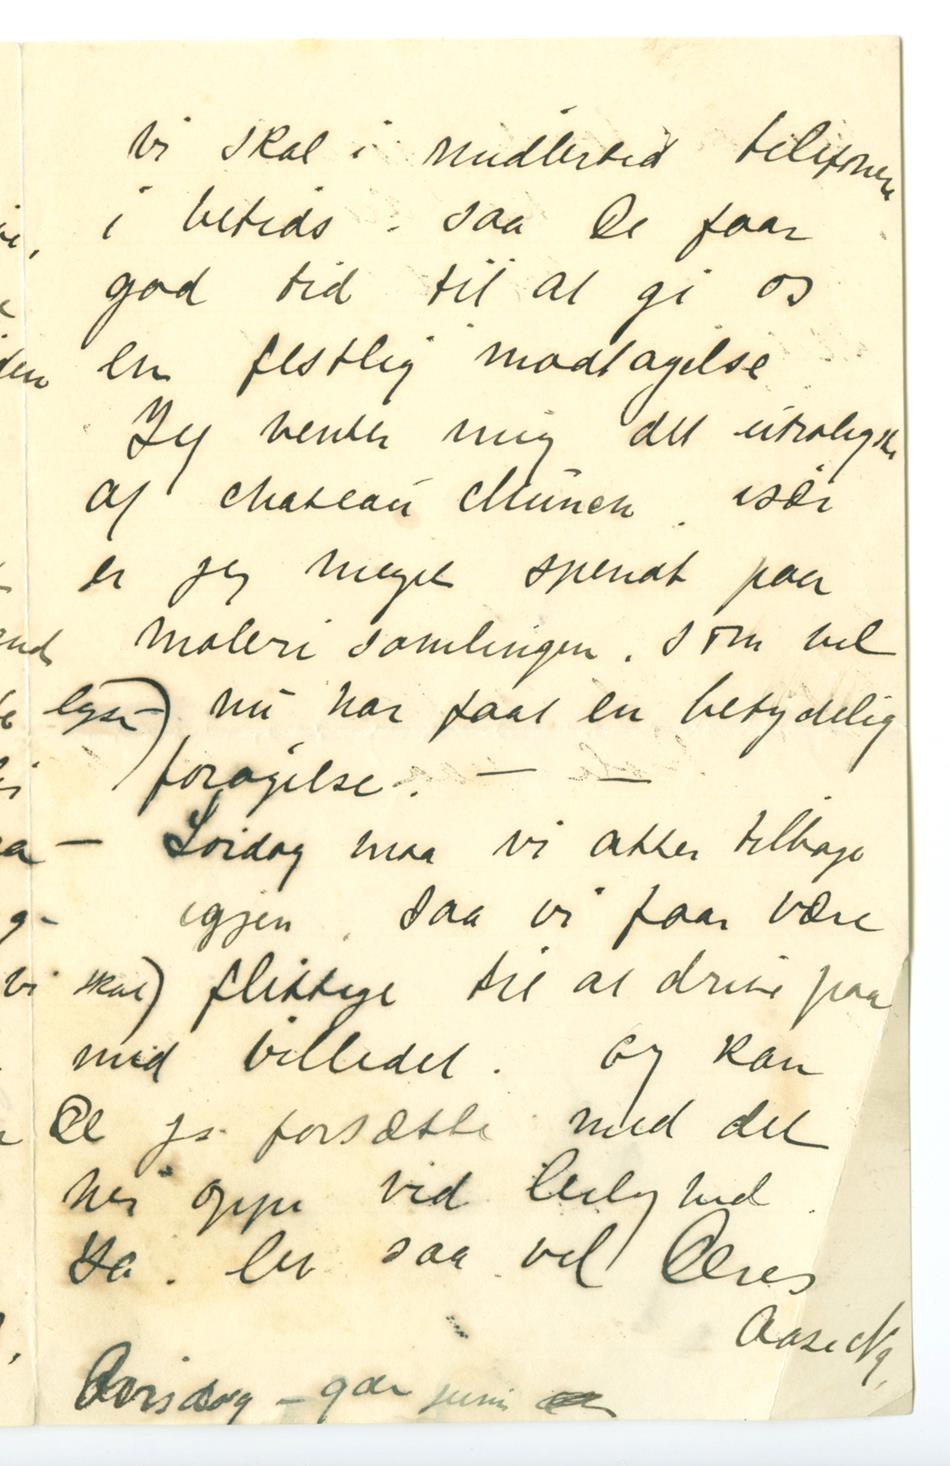 vi skal i midlertid telefonere
i betids. saa De faar
god tid til at gi os
en festlig modtagelse
Jeg venter mig det utroligste
af chateau Munch. især
er jeg meget spendt paa
maleri samlingen. som vel
nu har faat en betydelig
forøgelse. — —
Lørdag maa vi atter tilbage
igjen. saa vi faar være
vi skal) flittige til at drive paa
med billedet. og kan
De jo forsætte med det
her oppe ved leilighed.
Ja. lev saa vel Deres
Aase Ng.
gaar